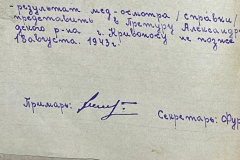 - результат мед-осмотра /справки/
представить в Претуру Александро
г. Кривоносу не позже
18 августа. 1943 г.
Примарь:
Секретарь: Фур